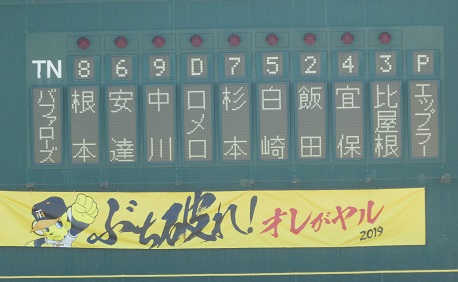 TN 8 6 9 D 7 5 2 4 3 P
バファローズ 根本 安達 中川 ロメロ 杉本 白崎 飯田 宜保 比屋根 エップラー
ぶち破れ! オレがヤル
2019